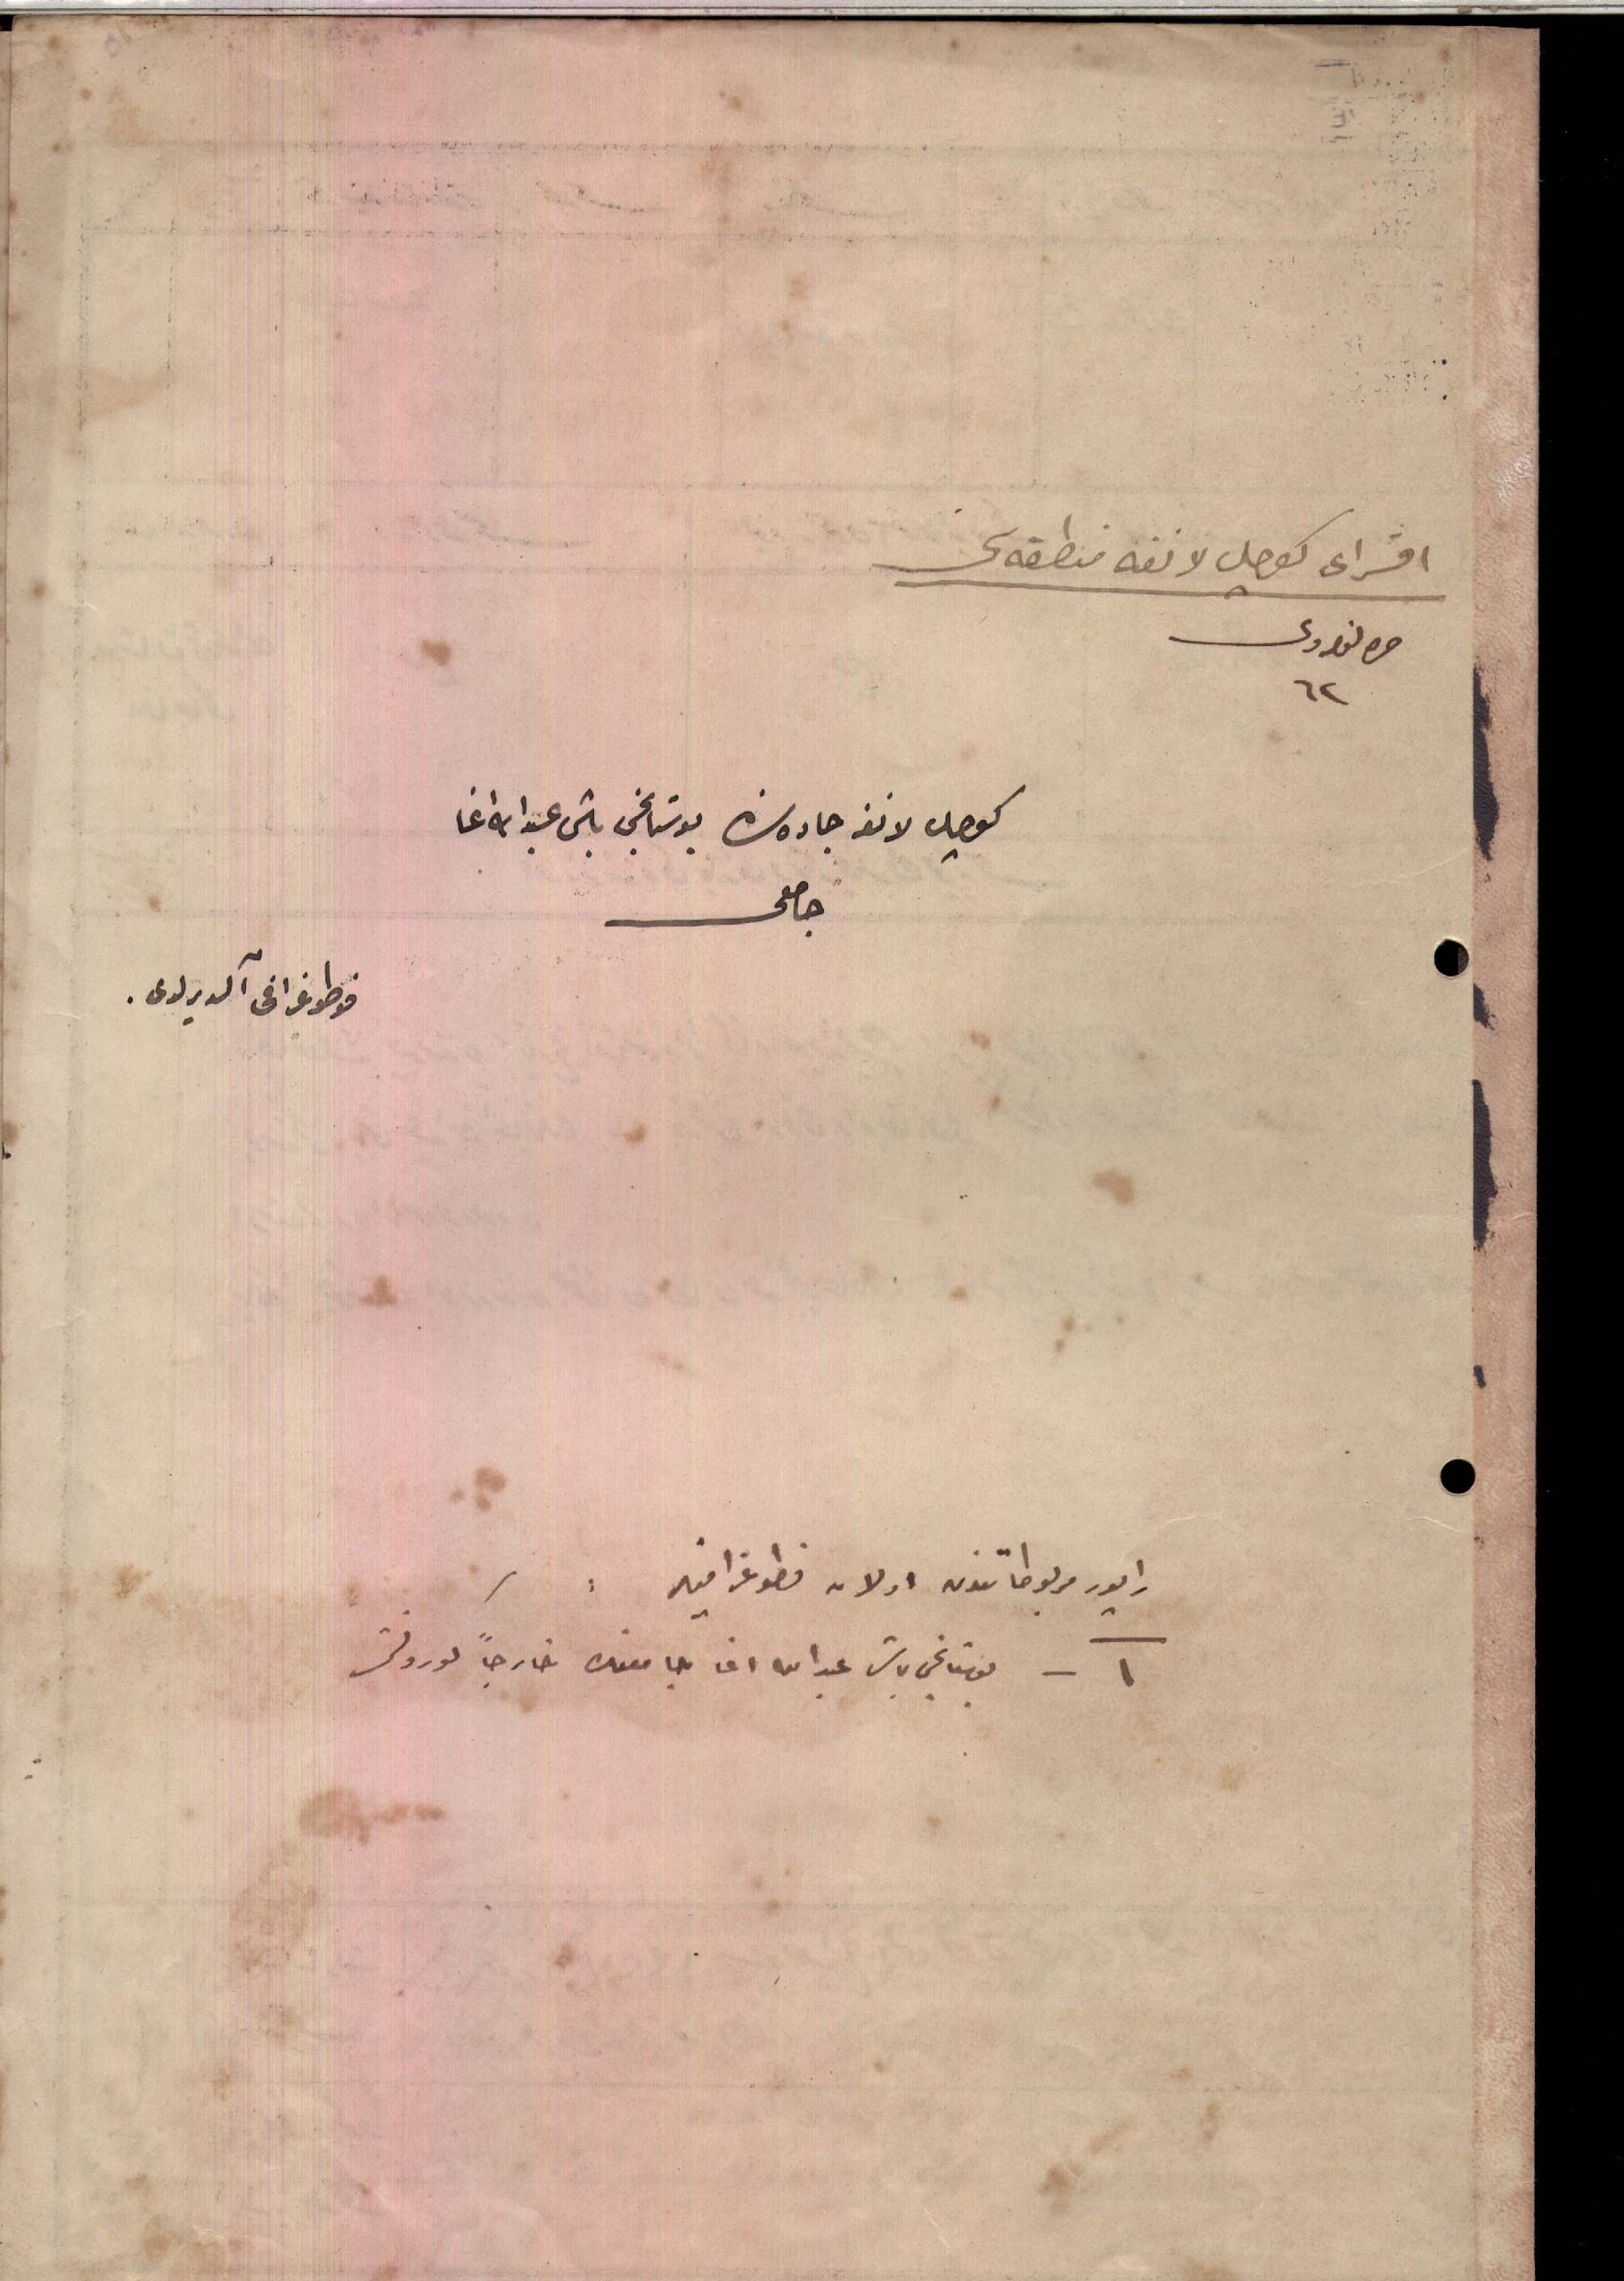 اقسرای كوچك لانغه منطقه‌سی
صره نومروسی
٦٢
كوچك لانغه جاده‌سنده بوستانجی باشی عبدالله اغا
جامعی
فوطوغرافی آلدیریلدی .
راپور مربوطاتندن اولان فطوغرافیلر :
١ — بوستانجی باشی عبدالله اغا جامعنك خارجاً گورونشی